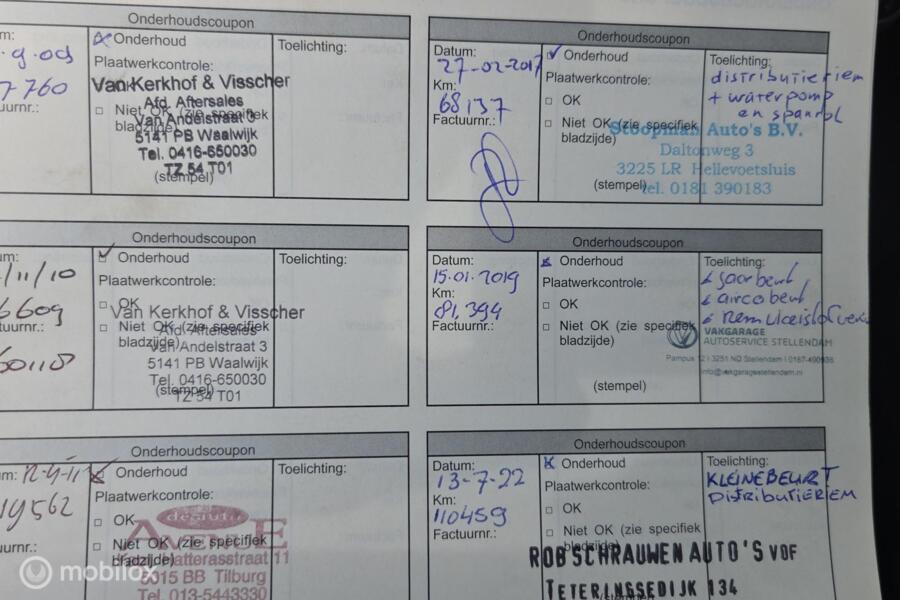 Onderhoudscoupon
m:
.9.09
Onderhoud
Plaatwerkcontrole:
Toelichting:
7760
tuurnr.:
OK
Niet OK (zie specifiek
bladzijde)
Van Kerkhof & Visscher
Afd. Aftersales
Van Andelstraat 3
5141 PB Waalwijk
Tel. 0416-650030
TZ 54 T01
(stempel)
Onderhoudscoupon
Datum:
27-02-2017
Km:
68137
Factuurnr.:
Onderhoud
Plaatwerkcontrole:
OK
Niet OK (zie specifiek
bladzijde)
Toelichting:
distributieriem
+ waterpomp
en spanrol
Stoopman Auto's B.V.
Daltonweg 3
3225 LR Hellevoetsluis
tel. 0181 390183
(stempel)
Onderhoudscoupon
um:
/11/10
6609
tuurnr.:
Onderhoud
Plaatwerkcontrole:
OK
Niet OK (zie specifiek
bladzijde)
Toelichting:
Van Kerkhof & Visscher
Afd. Aftersales
Van Andelstraat 3
5141 PB Waalwijk
Tel. 0416-650030
TZ 54 T01
(stempel)
Onderhoudscoupon
Datum:
15.01.2019
Km:
81.394
Factuurnr.:
Onderhoud
Plaatwerkcontrole:
OK
Niet OK (zie specifiek
bladzijde)
Toelichting:
Jaarbeurt
aircobeurt
VAKGARAGE
AUTOSERVICE STELLENDAM
Pampus 12 | 3251 ND Stellendam | 0187-490936
info@vakgaragestellendam.nl
(stempel)
Onderhoudscoupon
um:
Onderhoud
Plaatwerkcontrole:
Toelichting:
19562
uurnr.:
OK
Niet OK (zie specifiek
bladzijde)
AVENUE
atterasstraat 11
5015 BB Tilburg
Tel. 013-5443330
Onderhoudscoupon
Datum:
13-7-22
Km:
110459
Factuurnr.:
Onderhoud
Plaatwerkcontrole:
OK
Niet OK (zie specifiek
bladzijde)
Toelichting:
KLEINEBEURT
DISTRIBUTIERIEM
ROB SCHRAUWEN AUTO'S VOF
TETERINGSEDIJK 134
(stempel)
mobilox